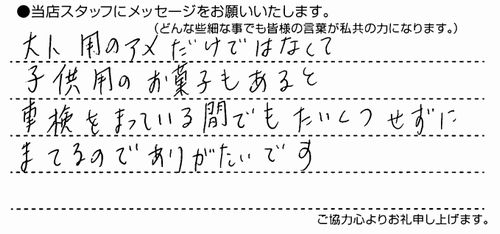 ●当店スタッフにメッセージをお願いいたします。
(どんな些細な事でも皆様の言葉が私共の力になります。)
大人用のアメだけではなくて
子供用のお菓子もあると
車検をまっている間でもたいくつせずに
まてるのでありがたいです
ご協力心よりお礼申し上げます。